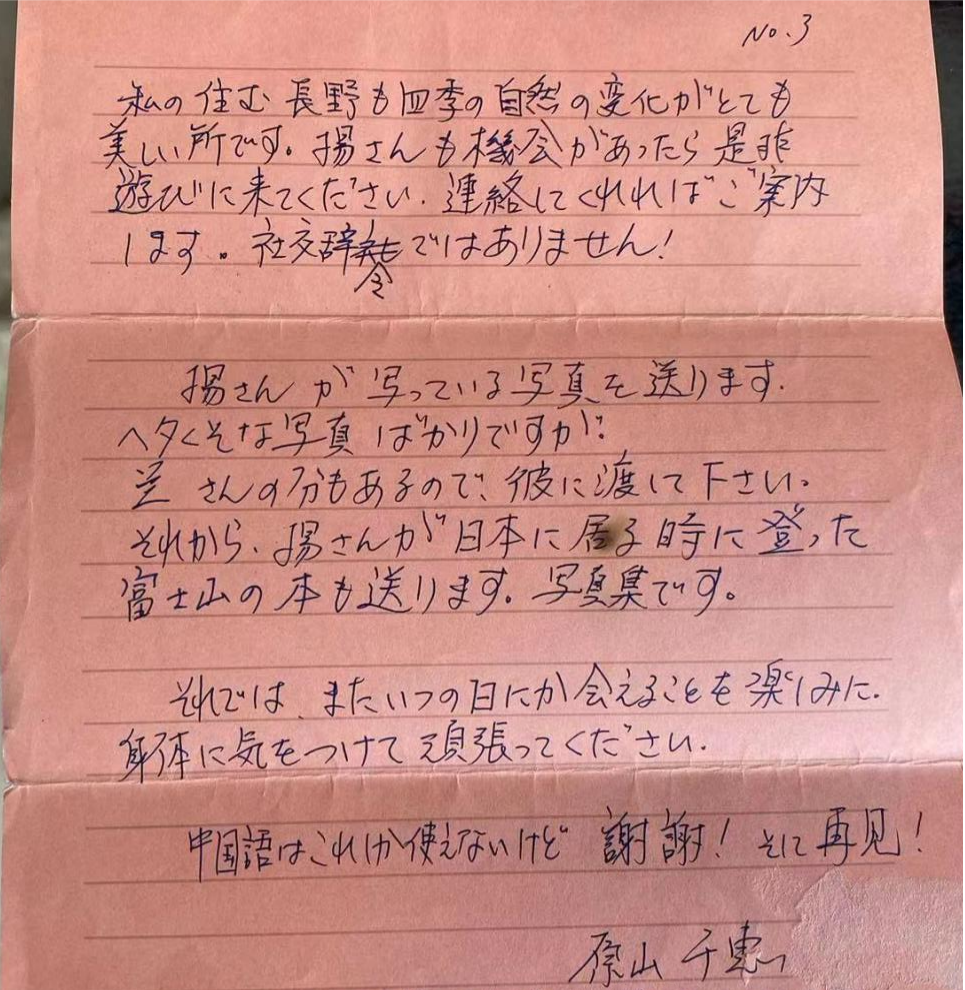 No.3
私の住む長野も四季の自然の変化がとても
美しい所です。揚さんも機会があったら是非
遊びに来てください。連絡してくれればご案内
します。社交辞令ではありません!
揚さんが写っている写真を送ります。
ヘタくそな写真ばかりですが。
さんの分もあるので、彼に渡して下さい。
それから、揚さんが日本に居る時に登った
富士山の本も送ります。写真集です。
それでは、またいつの日にか会えることを楽しみに。
身体に気をつけて頑張ってください。
中国語はこれしか使えないけど 謝謝! そして再見!
原山 千恵